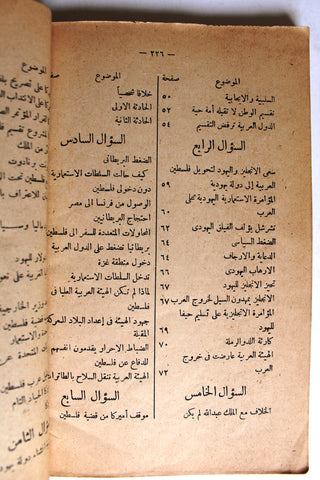 — ٢٢٦ —
الموضوع صفحة
السلبية والايجابية ٥٠
تقسيم الوطن لا تقبله أمة حية ٥٢
الدول العربية ترفض التقسيم ٥٤
السؤال الرابع
سعى الانجليز واليهود لتحويل فلسطين
العربية إلى دولة يهودية ٥٩
المؤامرة الاستعمارية اليهودية تجلى
العرب ٦٠
تشرشل يؤلف الفيلق اليهودى ٦٢
الضغط السياسى ٦٤
الدعاية والارجاف ٦٤
الارهاب اليهودى ٦٦
تحيز الانجليز لليهود ٦٧
الانجليز يمهدون السبل لخروج العرب ٦٧
المؤامرة الانجليزية على تسليم حيفا
لليهود ٦٩
كارثة اللد والرملة ٧٠
الهيئة العربية عارضت فى خروج
العرب ٧٢
السؤال الخامس
الخلاف مع الملك عبدالله لم يكن
الموضوع صفحة
خلافا شخصياً
الحادثة الاولى
الحادثة الثانية
السؤال السادس
الضغط البريطانى
كيف حالت السلطات الاستعمارية
دون دخولى فلسطين
الوصول من فرنسا الى مصر
احتجاج البريطانيين
المحاولات المتعددة للسفر الى فلسطين
بريطانيا تضغط على الدول العربية
دخول منطقة غزة
تدخل السلطات الاستعمارية
لماذا لم تكن الهيئة العربية العليا فى
فلسطين
جهود الهيئة فى إعداد البلاد للمعركة
المقبلة
الضباط الاحرار يقدمون انفسهم
للدفاع عن فلسطين
الهيئة العربية تنقل السلاح بالطائرات
السؤال السابع
موقف أميركا من قضية فلسطين
الموضوع
السؤال الثامن